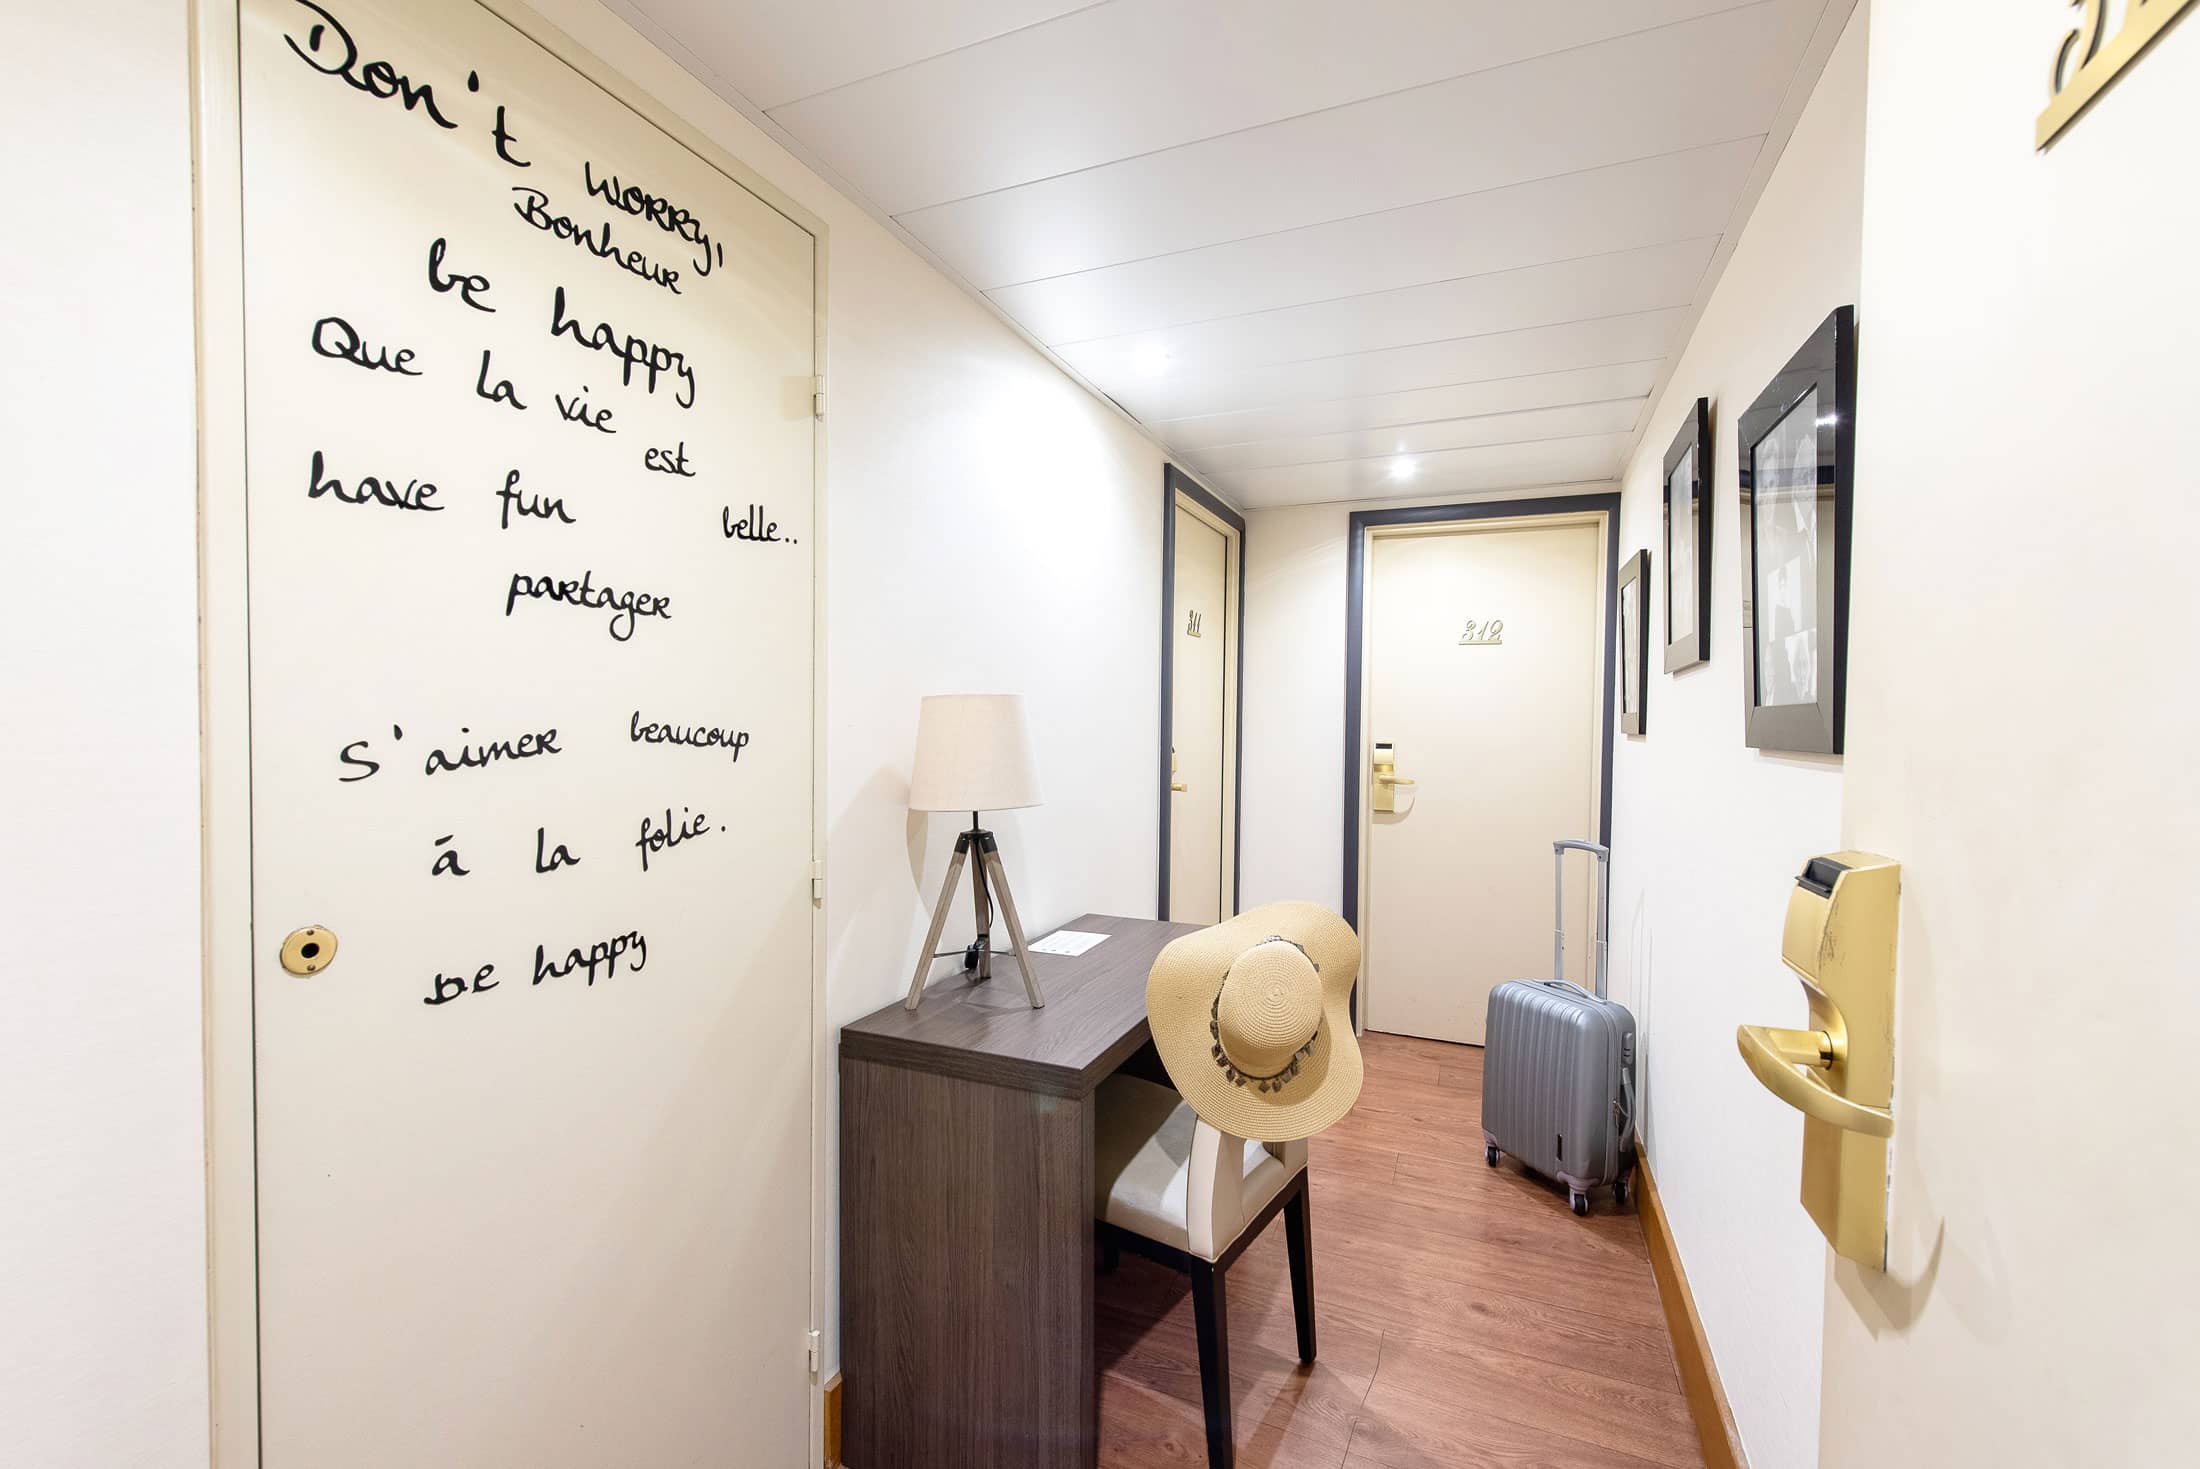 Don't worry,
Bonheur
be happy
Que la vie est belle..
have fun
partager
S'aimer beaucoup
à la folie.
Be happy
311
312